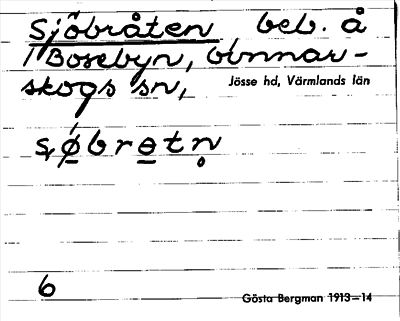 Sjöbråten beb. å
Bosebyn, Gunnar-
skogs sn, Jösse hd, Värmlands län
6
Gösta Bergman 1913—14